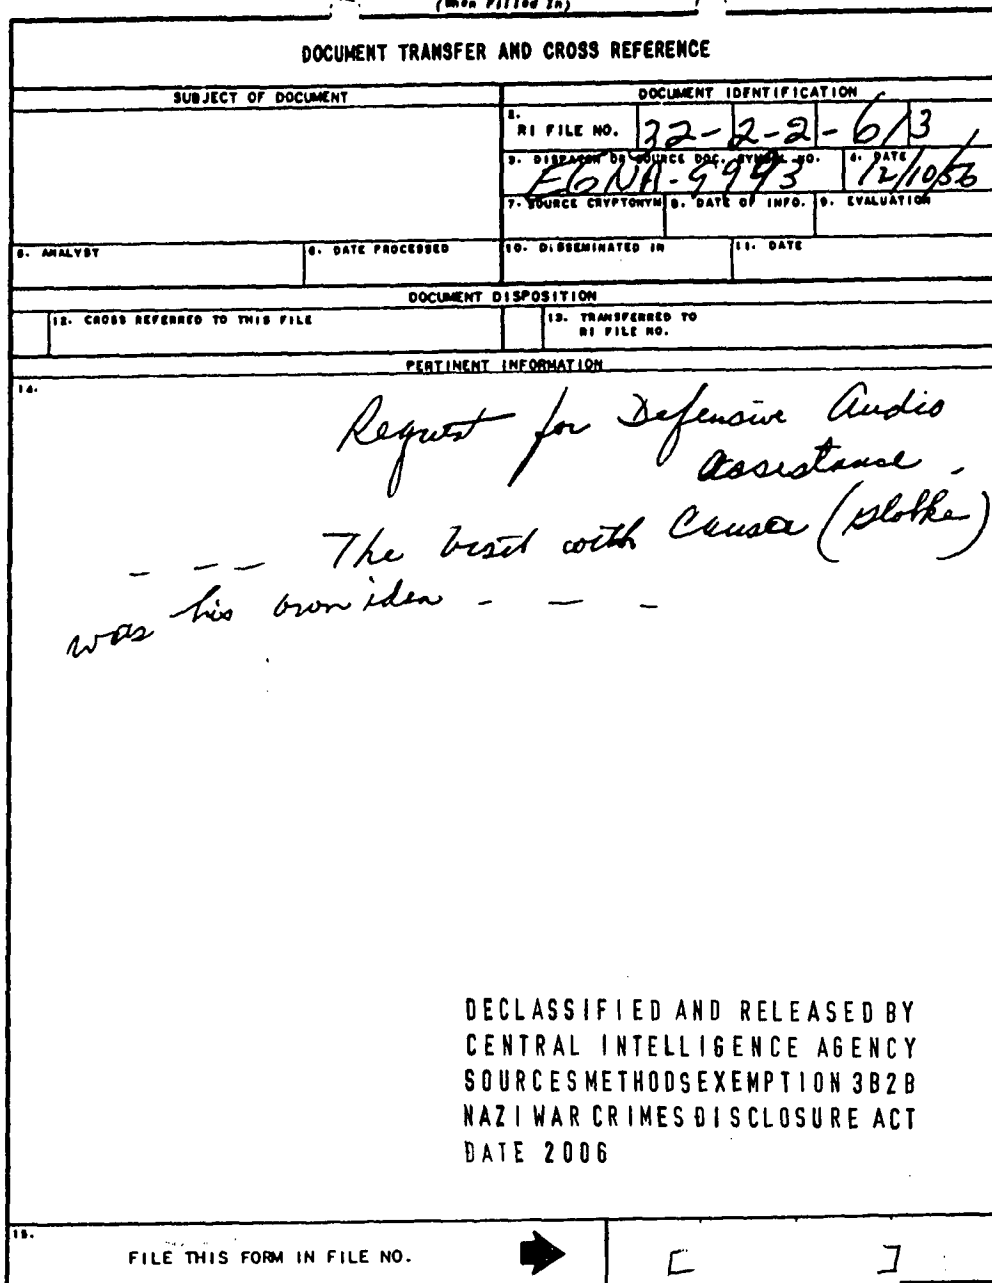 (When Filled In)
DOCUMENT TRANSFER AND CROSS REFERENCE
SUBJECT OF DOCUMENT
DOCUMENT IDENTIFICATION
2. RI FILE NO. 32-2-2-6/3
3. DISPATCH OR SOURCE DOC. SYMBOL NO. 4. DATE
EGNA-9993 12/10/56
7. SOURCE CRYPTONYM 8. DATE OF INFO. 9. EVALUATION
5. ANALYST 6. DATE PROCESSED 10. DISSEMINATED IN 11. DATE
DOCUMENT DISPOSITION
12. CROSS REFERRED TO THIS FILE 13. TRANSFERRED TO
RI FILE NO.
PERTINENT INFORMATION
14.
Request for Defensive Audio
assistance.
- - - The visit with (
was his own idea - - -
DECLASSIFIED AND RELEASED BY
CENTRAL INTELLIGENCE AGENCY
SOURCES METHODS EXEMPTION 3B2B
NAZI WAR CRIMES DISCLOSURE ACT
DATE 2006
15.
FILE THIS FORM IN FILE NO. [ ]